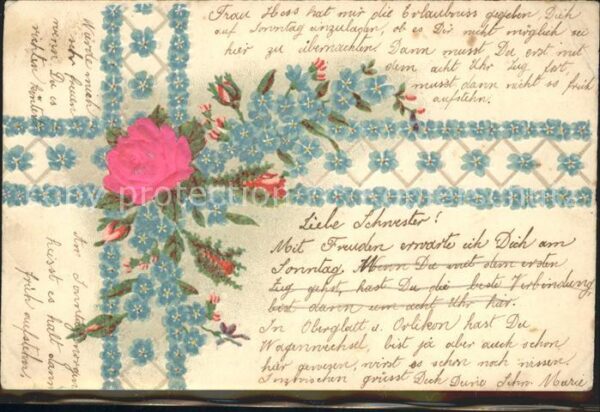 Liebe Schwester!
Mit Freuden erwarte ich Dich am
Sonntag. Wenn Du mit dem ersten
Zug gehst, hast Du die beste Verbindung,
bist dann um acht Uhr hier.
In Oberglatt u. Örlikon hast Du
Wagenwechsel, bist ja aber auch schon
hier gewesen, wirst es schon noch wissen.
Inzwischen grüsst Dich Deine Schw. Marie
Frau Hess hat mir die Erlaubniss gegeben, Dich
auf Sonntag einzuladen, ob es Dir nicht möglich sei
hier zu übernachten. Dann musst Du erst mit
dem acht Uhr Zug fort,
musst dann nicht so früh
aufstehn.
Würde mich
sehr freuen
wenn Du es
richten könntest
Am Sonntag morgen
heisst es halt dann
früh aufstehn